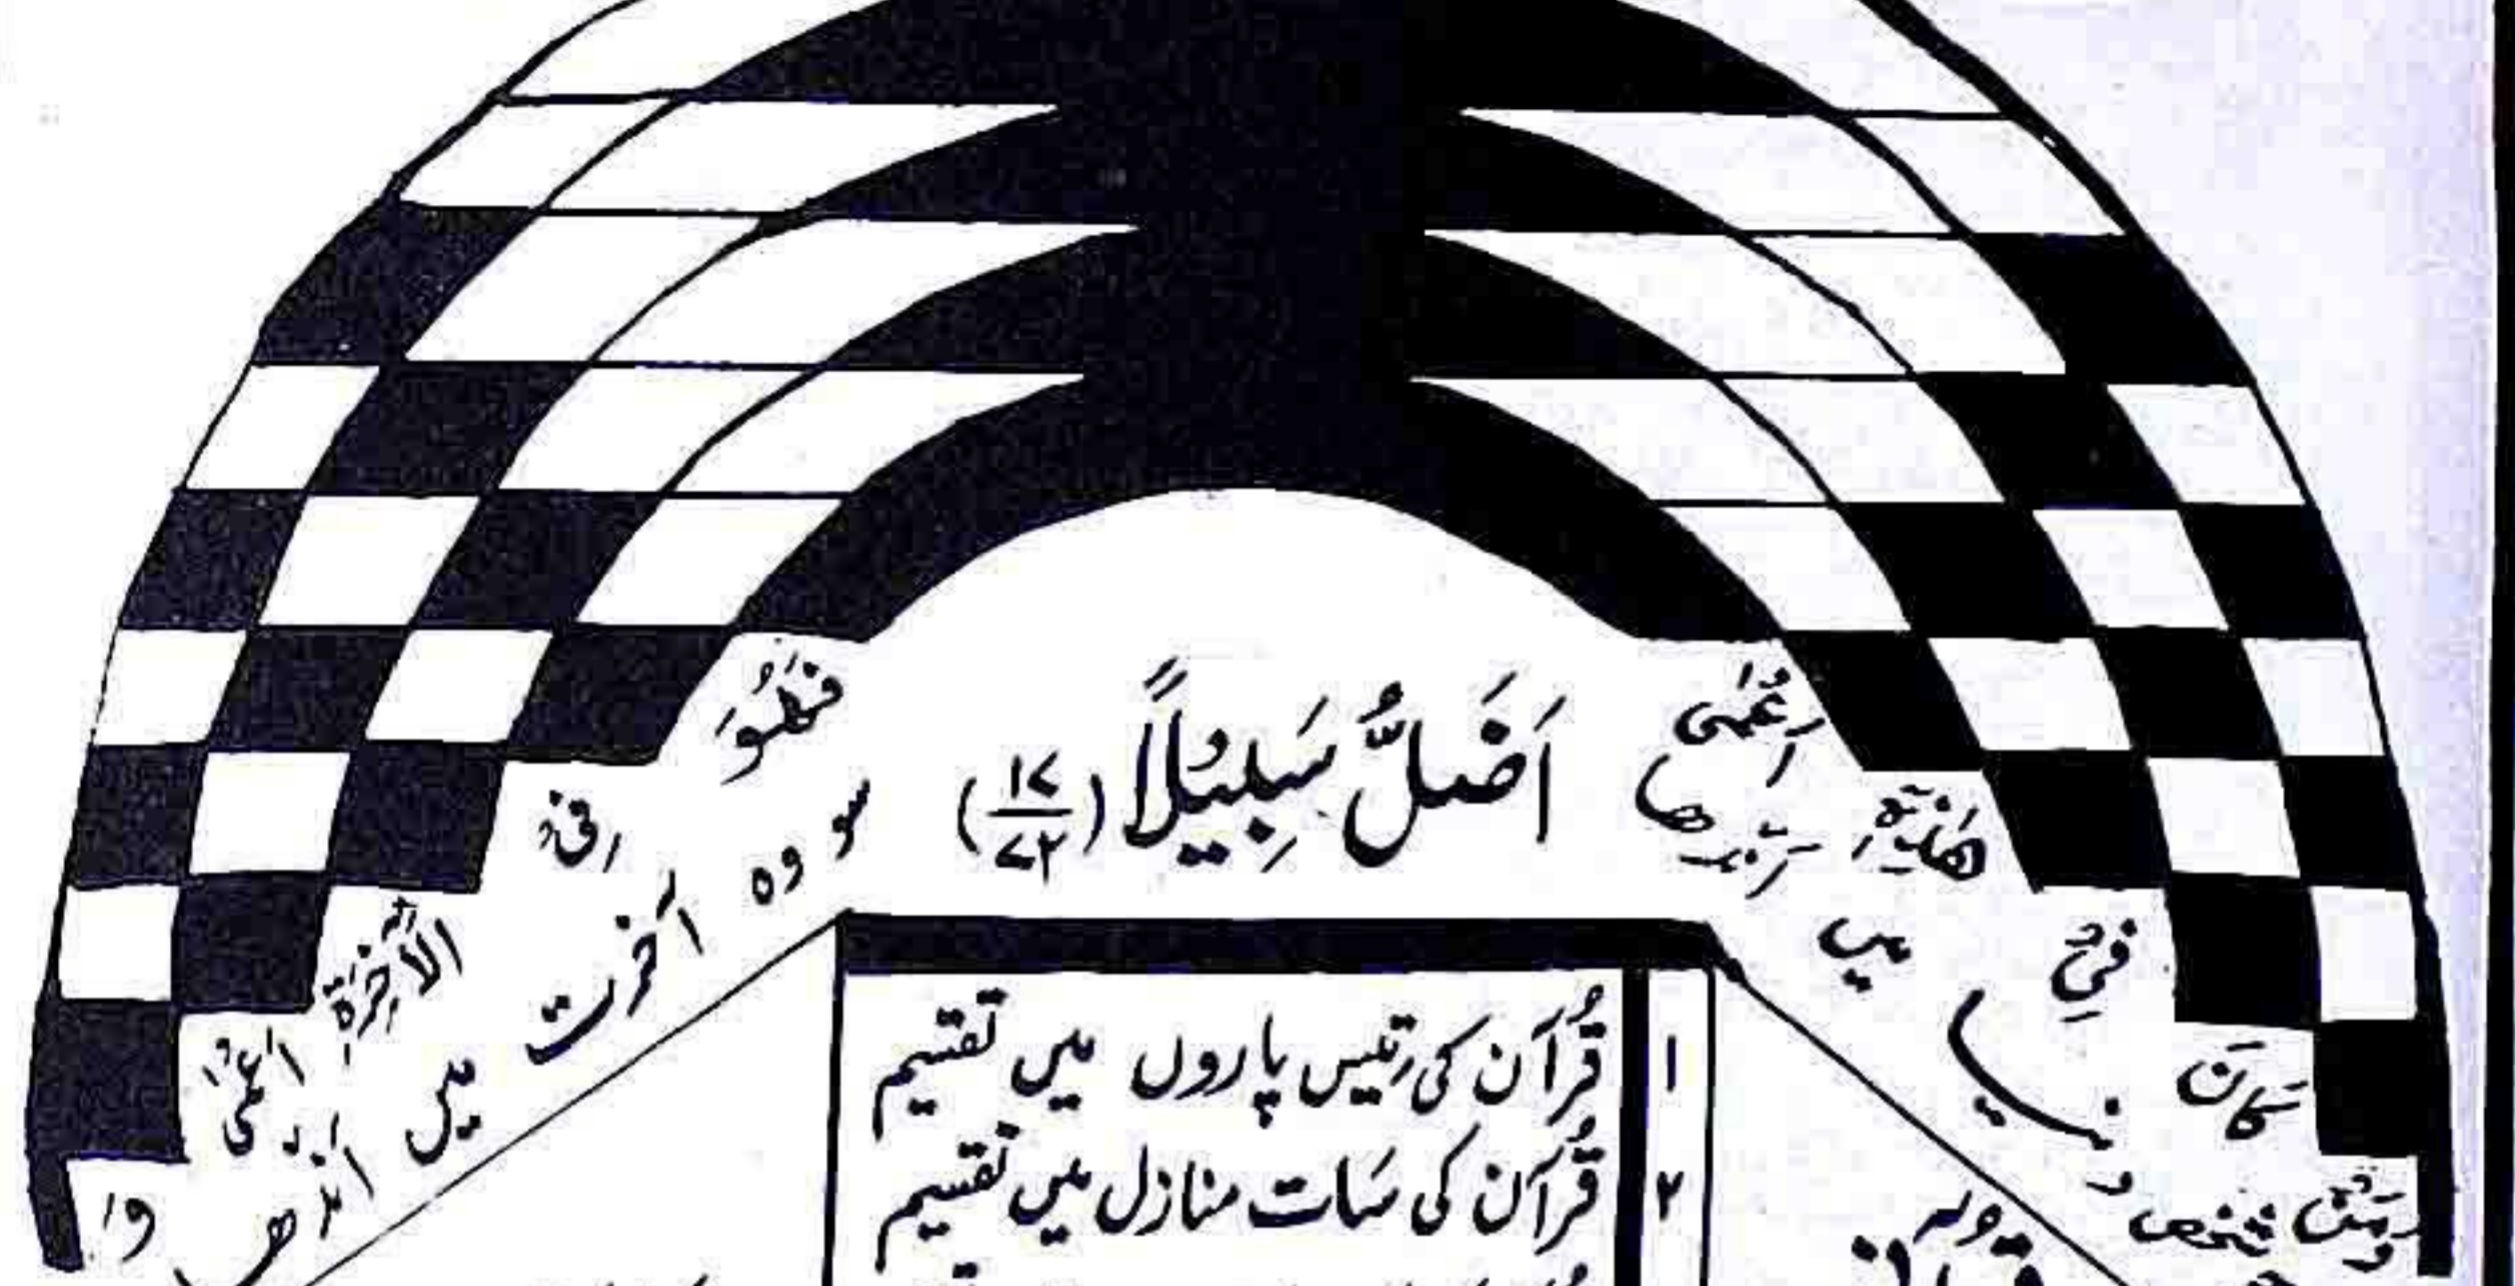 وَمَنْ كَانَ فِيْ هٰذِهٖٓ اَعْمٰى
فَهُوَ فِي الْاٰخِرَةِ اَعْمٰى وَ
اَضَلُّ سَبِيْلًا (۱۷/۷۲)
شخص دنیا میں رہا
سو وہ آخرت میں اندھا
۱ قُرآن کی تیس پاروں میں تقسیم
۲ قُرآن کی سَات منازل میں تقسیم